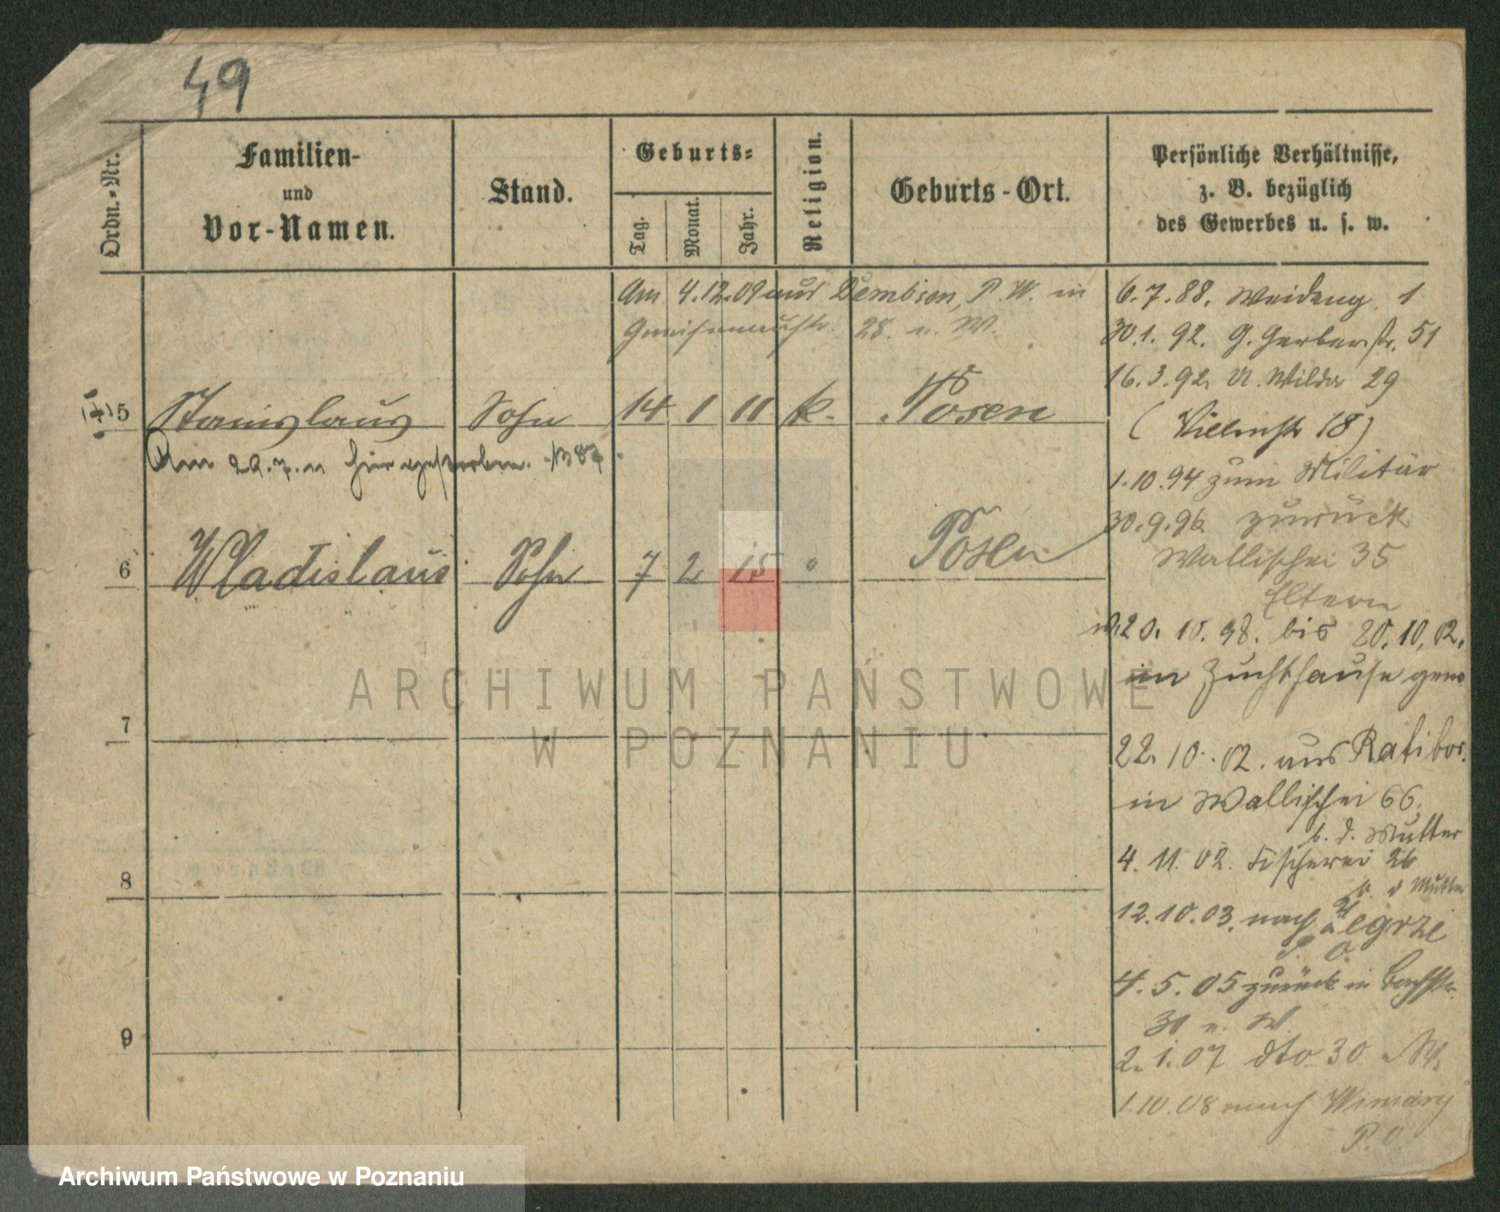 49
Ordn.-Nr.
Familien-
und
Vor-Namen.
Stand.
Geburts-
Tag.
Monat.
Jahr.
Religion.
Geburts-Ort.
Persönliche Verhältnisse,
z. B. bezüglich
des Gewerbes u. s. w.
Am 4.12.09 aus Dembsen, P. W. in
Gneisenaustr. 28. u. W.
5 Stanislaus Sohn 14 1 11 k. Posen
Am 29.7.11 hier gestorben.
6 Wladislaus Sohn 7 2 15 " Posen
7
8
9
6.7.88. Weideng 1
30.1.92. G. Gerberstr. 51
16.3.92. U. Wilda 29
18)
1.10.94 zum Militär
30.9.96 zurück
Wallischei 35
Eltern
20.10.98. bis 20.10.02.
im Zuchthause gew
22.10.02. aus Ratibor.
in Wallischei 66.
b. d. Mutter
4.11.02. Fischerei 26
b. d Mutter
12.10.03. nach
4.5.05 zurück in Bachstr.
30 u. W
2.1.07 dto 30
1.10.08 nach
P. O
ARCHIWUM PAŃSTWOWE
W POZNANIU
Archiwum Państwowe w Poznaniu